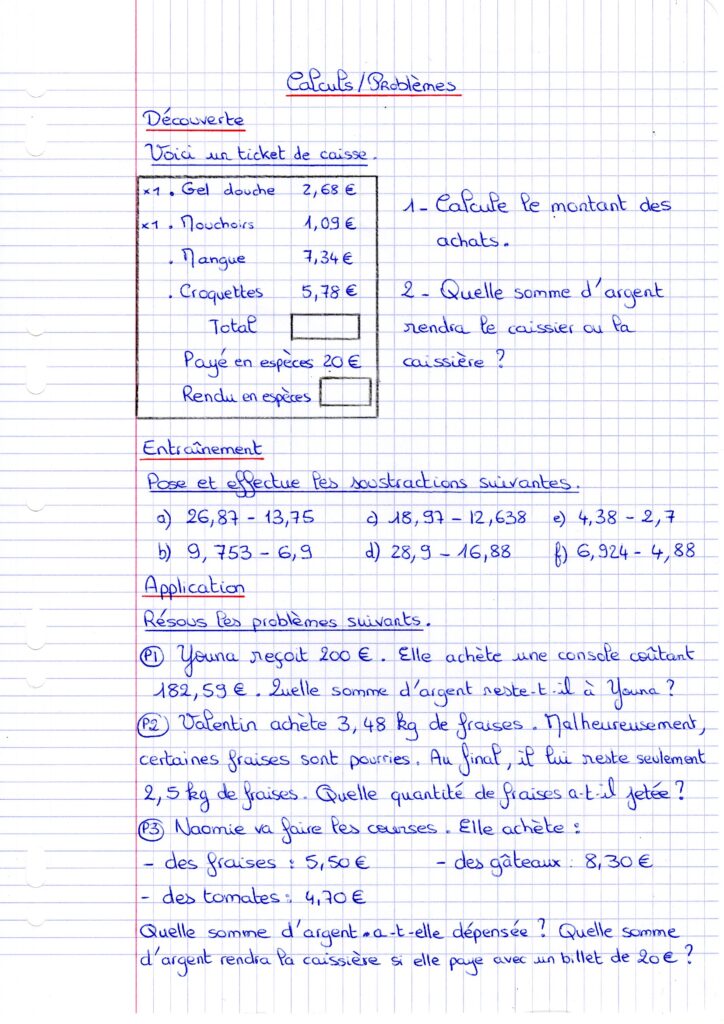 Calculs/Problèmes
Découverte
Voici un ticket de caisse.
x1 . Gel douche 2,68 €
x1 . Mouchoirs 1,09 €
. Mangue 7,34 €
. Croquettes 5,78 €
Total
Payé en espèces 20 €
Rendu en espèces
1- Calcule le montant des
achats.
2- Quelle somme d'argent
rendra le caissier ou la
caissière ?
Entraînement
Pose et effectue les soustractions suivantes.
a) 26,87 - 13,75 c) 18,97 - 12,638 e) 4,38 - 2,7
b) 9,753 - 6,9 d) 28,9 - 16,88 f) 6,924 - 4,88
Application
Résous les problèmes suivants.
P1 Youna reçoit 200 €. Elle achète une console coûtant
182,59 €. Quelle somme d'argent reste-t-il à Youna ?
P2 Valentin achète 3,48 kg de fraises. Malheureusement,
certaines fraises sont pourries. Au final, il lui reste seulement
2,5 kg de fraises. Quelle quantité de fraises a-t-il jetée ?
P3 Naomie va faire les courses. Elle achète :
- des fraises : 5,50 € - des gâteaux : 8,30 €
- des tomates : 4,70 €
Quelle somme d'argent a-t-elle dépensée ? Quelle somme
d'argent rendra la caissière si elle paye avec un billet de 20 € ?